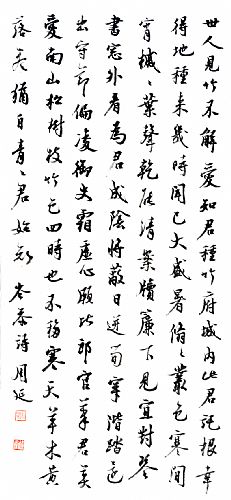 世人見竹不解愛知君種竹府城內此君託根幸
得地種來幾時聞已大盛暑翛々叢色寒閒
宵槭々葉聲乾能清案牘簾下見宜對琴
書窗外看為君成陰將蔽日迸筍穿階踏還
出守節偏凌御史霜虛心願比郎官筆君莫
愛南山松樹枝竹色四時也不移寒天草木黃
落盡猶自青々君始知 岑參詩 周延